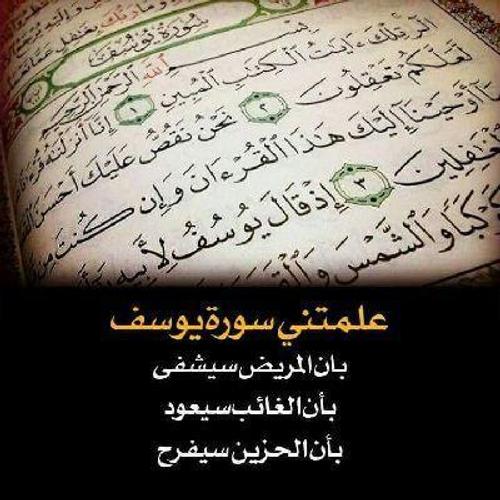 سورة يوسف
بسم الله الرحمن الرحيم
الر تلك ءايت الكتب المبين ١ إنا أنزلنه قرء
لعلكم تعقلون ٢ نحن نقص عليك أحسن
بما أوحينا إليك هذا القرءان وإن كنت من
الغفلين ٣ إذ قال يوسف لأبيه
كوكبا والشمس والقمر
علمتني سورة يوسف
بان المريض سيشفى
بأن الغائب سيعود
بأن الحزين سيفرح